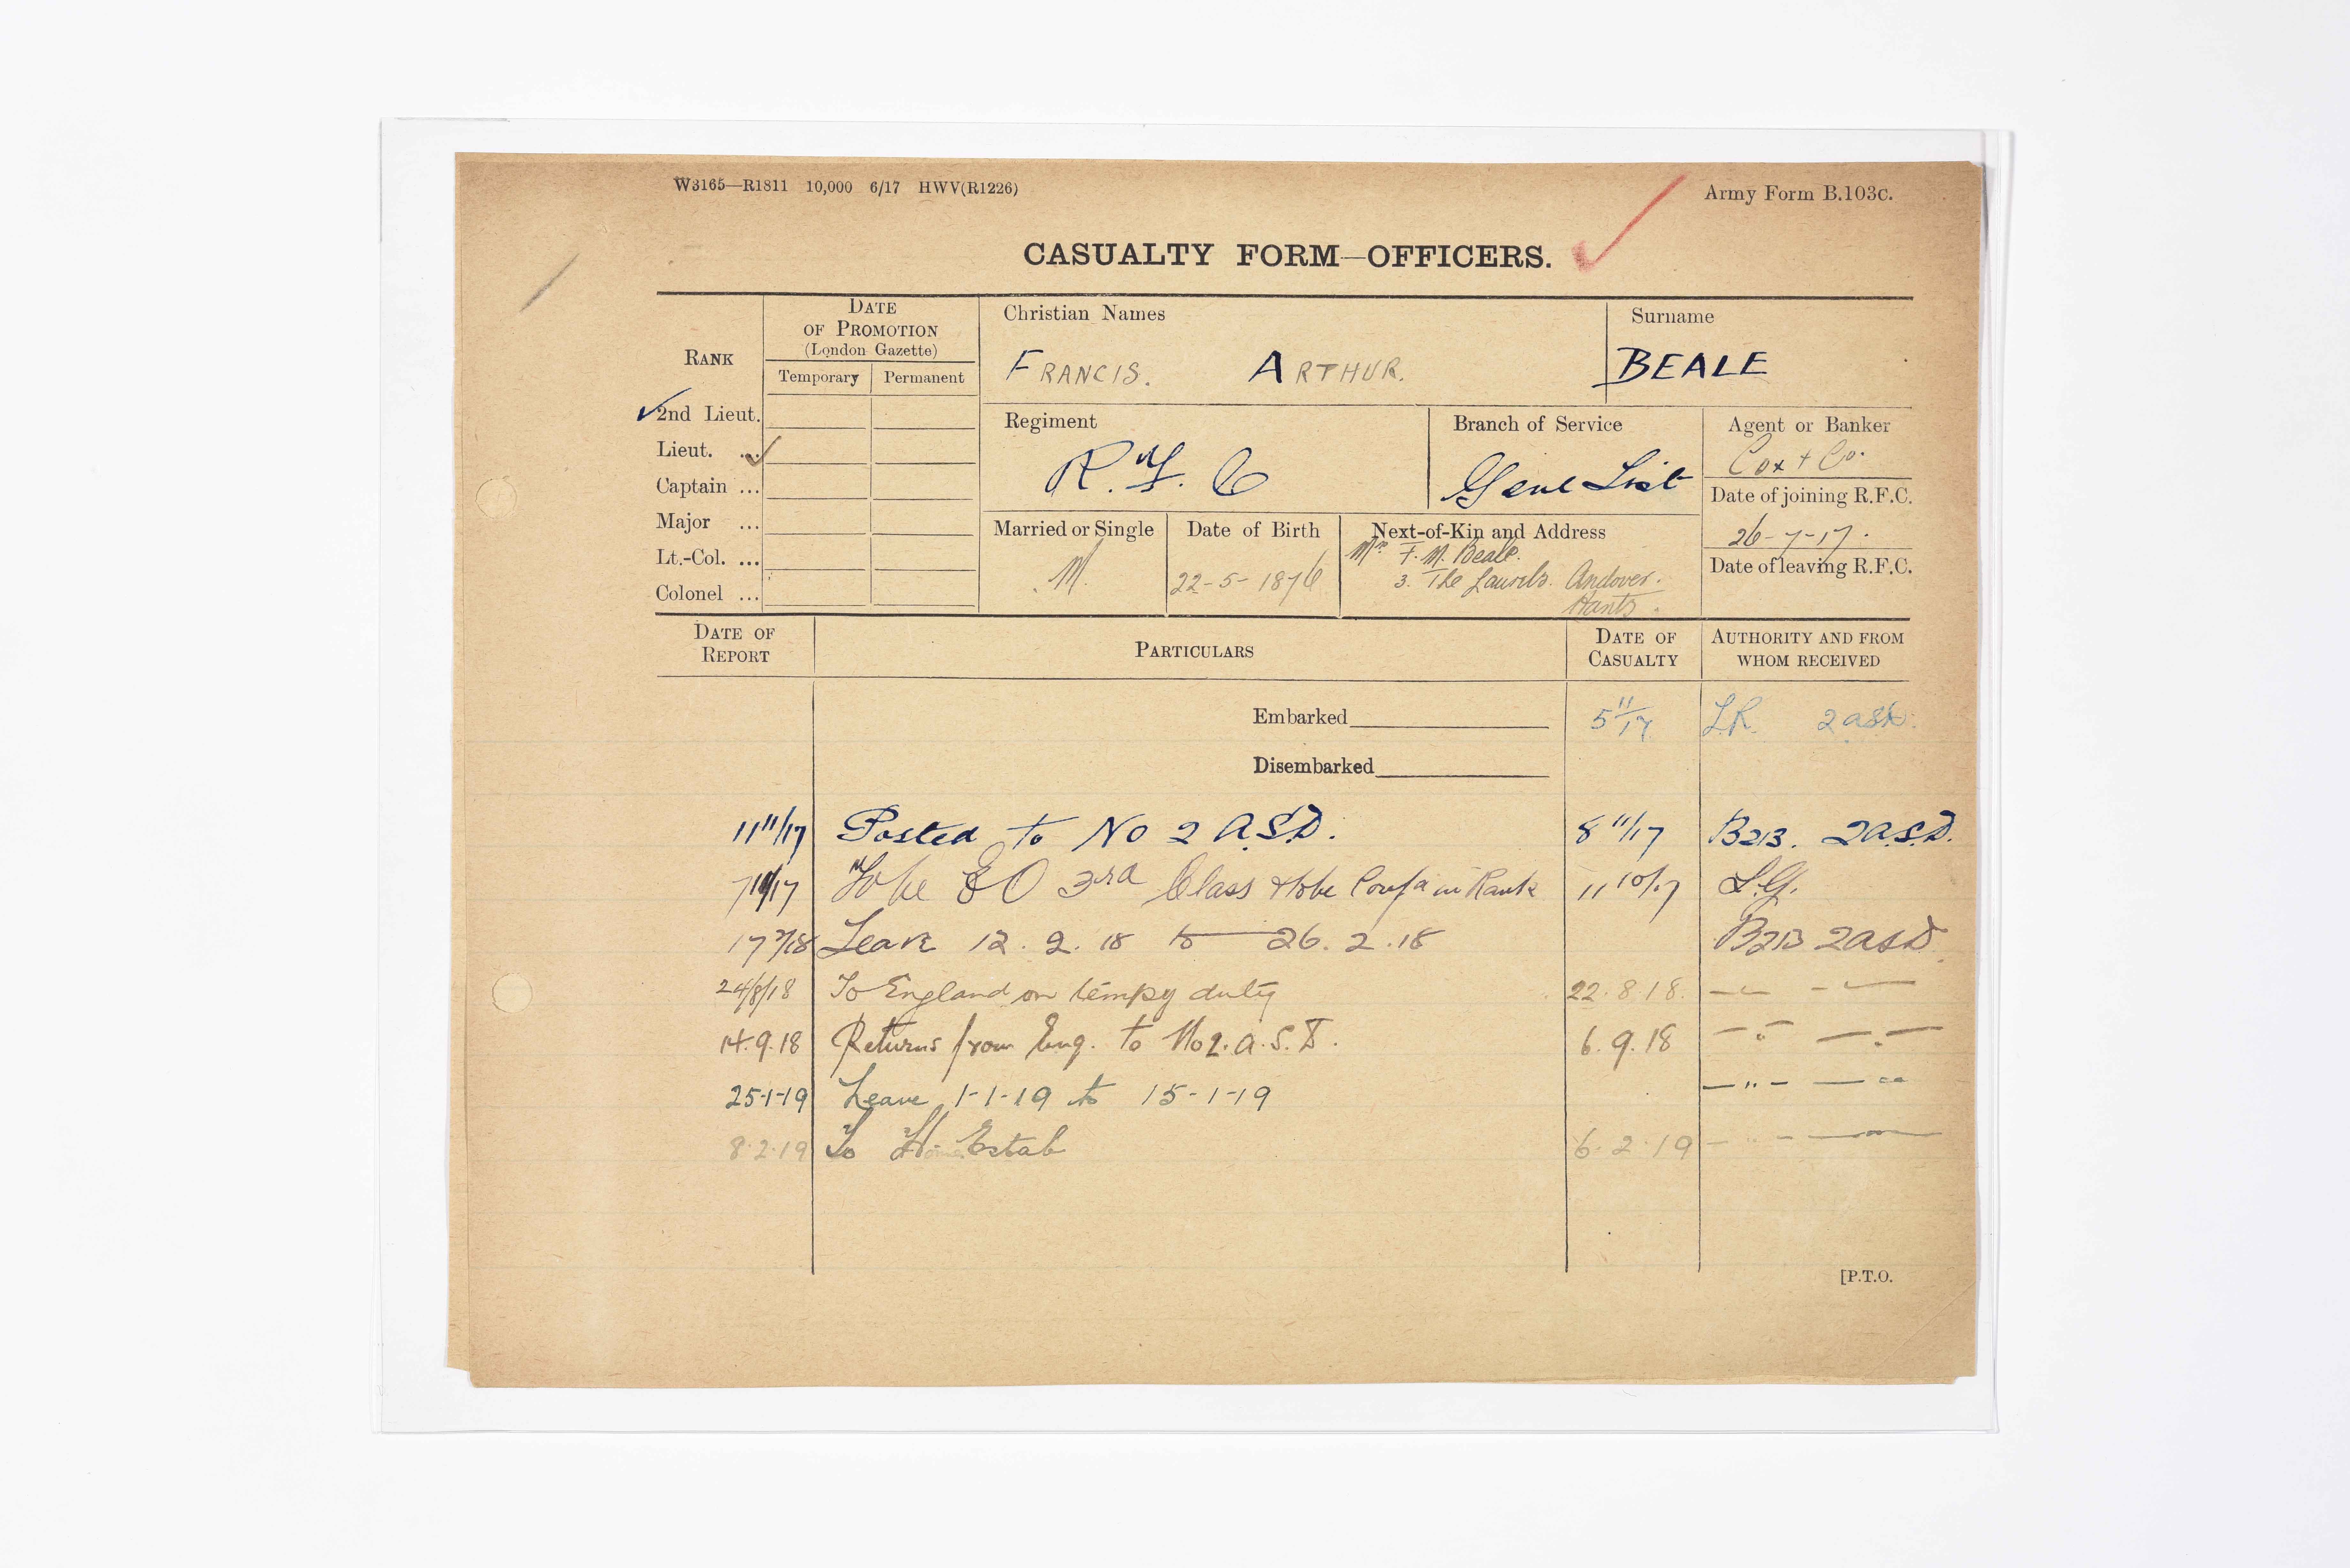 W3165—R1811 10,000 6/17 HWV(R1226)
Army Form B.103c.
CASUALTY FORM—OFFICERS.
RANK
DATE OF PROMOTION
(London Gazette)
Temporary Permanent
Christian Names
FRANCIS. ARTHUR.
Surname
BEALE
2nd Lieut.
Lieut. ...
Captain ...
Major ...
Lt.-Col. ...
Colonel ...
Regiment
R.F.C
Branch of Service
Genl List
Agent or Banker
Cox + Co.
Date of joining R.F.C.
26-7-17.
Date of leaving R.F.C.
Married or Single
M.
Date of Birth
22-5-1876
Next-of-Kin and Address
Mrs F. M. Beale.
3. The Laurels. Andover.
Hants.
DATE OF REPORT PARTICULARS DATE OF CASUALTY AUTHORITY AND FROM WHOM RECEIVED
Embarked 5 11/17 L.R. 2 ASD.
Disembarked
11 11/17 Posted to No 2 A.S.D. 8 11/17 B213. 2 A.S.D.
To be EO 3rd Class & to be Confd in Rank 11 10/17 L.G.
17 2/18 Leave 12.2.18 to 26.2.18 B213 2 ASD
24/8/18 To England on tempy duty 22.8.18. — " — — " —
14.9.18 Returns from Eng. to No 2. A.S.D. 6.9.18 — " — — " —
25-1-19 Leave 1-1-19 to 15-1-19 — " — — "
8.2.19 To Home Estab 6.2.19 — " — — " —
[P.T.O.